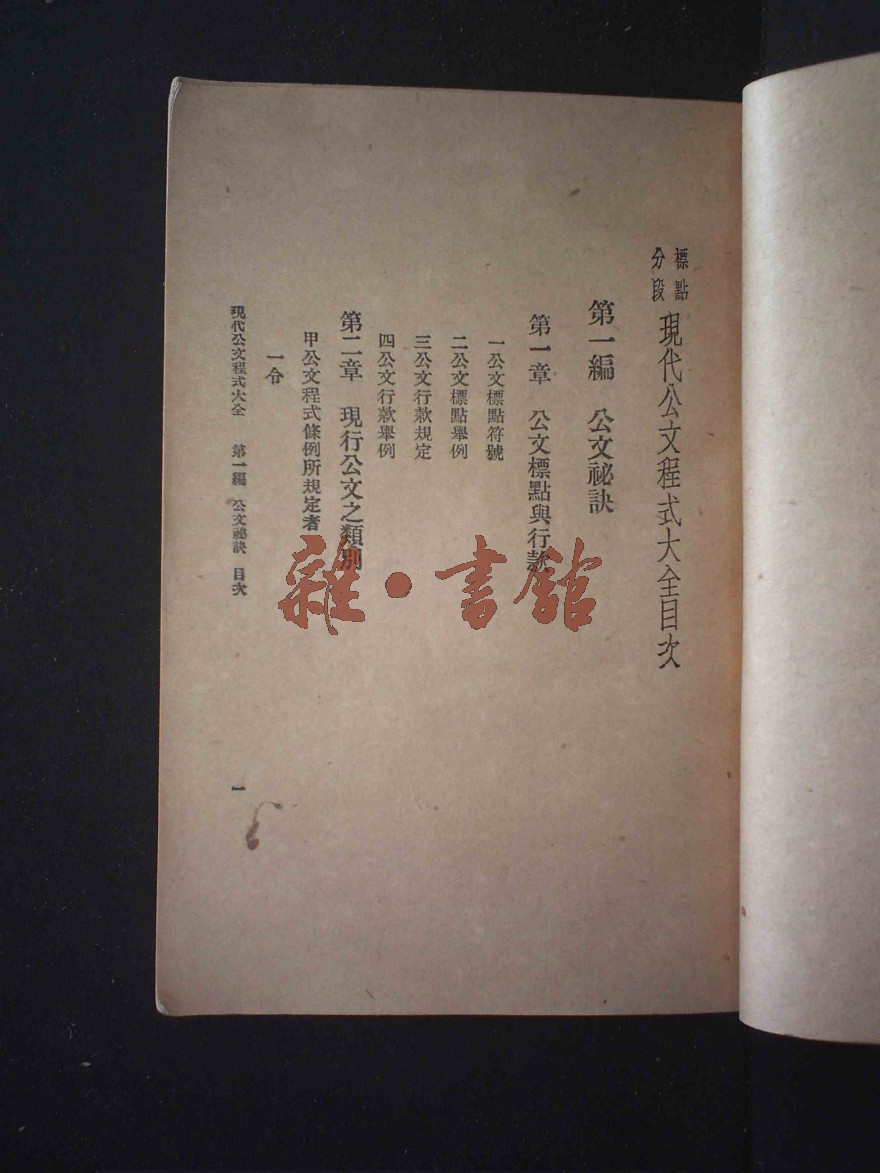 標點
分段
現代公文程式大全目次
第一編 公文祕訣
第一章 公文標點與行款
一公文標點符號
二公文標點舉例
三公文行款規定
四公文行款舉例
第二章 現行公文之類別
甲公文程式條例所規定者
一令
現代公文程式大全 第一編 公文祕訣 目次
一
雜·書館